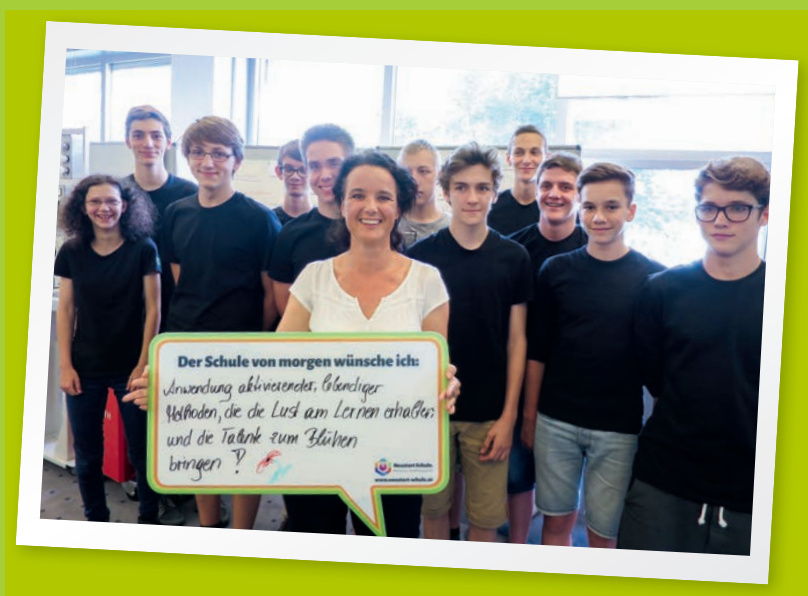 Der Schule von morgen wünsche ich:
Anwendung aktivierender, lebendiger
Methoden, die die Lust am Lernen erhalten
und die Talente zum Blühen
bringen!
Neustart Schule.
www.neustart-schule.at